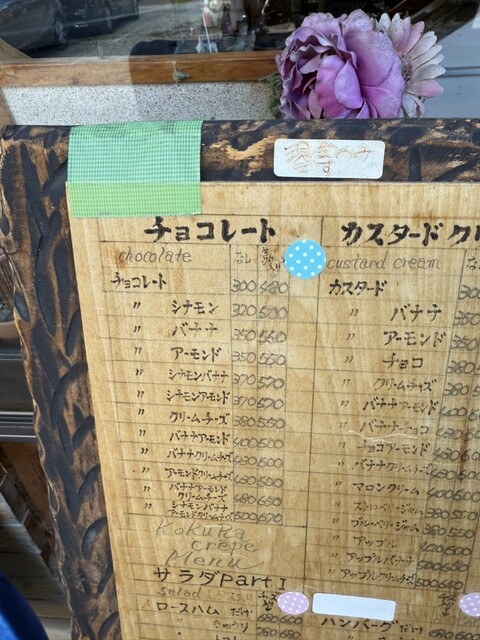 現金のみです
チョコレート
chocolate なし
チョコレート 300 480
〃 シナモン 320 520
〃 バナナ 350 550
〃 アーモンド 350 550
〃 シナモンバナナ 370 570
〃 シナモンアーモンド 370 570
〃 クリームチーズ 380 550
〃 バナナアーモンド 400 600
〃 バナナクリームチーズ 430 600
〃 アーモンドクリームチーズ
〃 バナナアーモンドクリームチーズ 480 650
〃 シナモンバナナアーモンドクリームチーズ 500 670
Kokuka
crepe
Menu
サラダPart I
salad
ロースハム だけ
カスタードクリ
custard cream な
カスタード
〃 バナナ 350
〃 アーモンド 350
〃 チョコ 380
〃 クリームチーズ 380
〃 バナナアーモンド 400
〃 バナナチョコ 430
〃 チョコアーモンド 430
〃 バナナクリームチーズ
〃 マロンクリーム 400
〃 ブルーベリージャム 380
〃 アップル
〃 アップルバナナ
〃 アップルクリームチーズ
ハンバーグ だけ